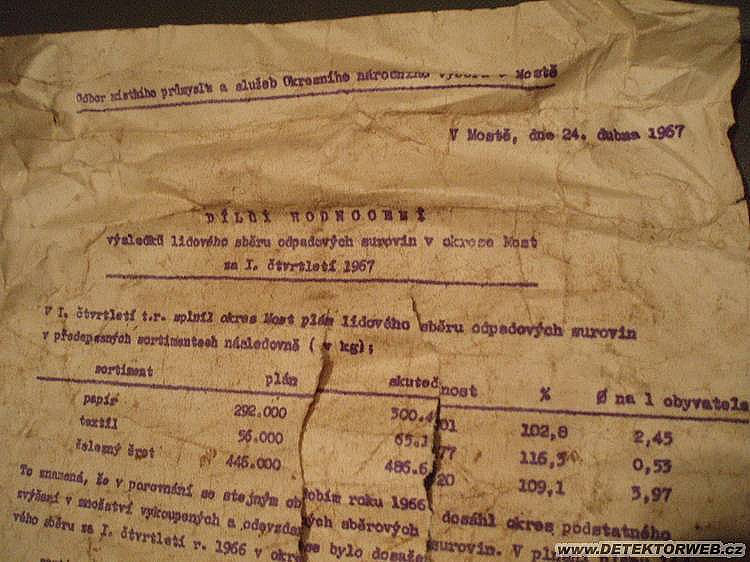 Odbor místního průmyslu a služeb Okresního národního výboru v Mostě
V Mostě, dne 24. dubna 1967
DÍLČÍ HODNOCENÍ
výsledků lidového sběru odpadových surovin v okrese Most
za I. čtvrtletí 1967
V I. čtvrtletí t.r. splnil okres Most plán lidového sběru odpadových surovin
v předepsaných sortimentech následovně ( v kg);
sortiment plán skutečnost % Ø na 1 obyvatele
papír 292.000 300.401 102,8 2,45
textil 56.000 65.177 116,3 0,53
železný šrot 446.000 486.620 109,1 3,97
To znamená, že v porovnání se stejným obdobím roku 1966 dosáhl okres podstatného
zvýšení v množství vykoupených a odevzdaných sběrových surovin. V
vého sběru za I. čtvrtletí r. 1966 v okrese bylo
www.DETEKTORWEB.cz